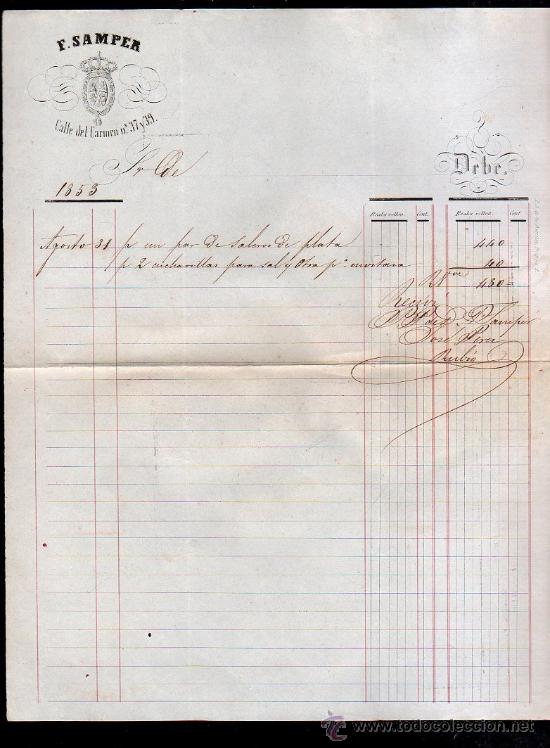 F. SAMPER
Calle del Carmen nº. 37 y 39.
Debe.
Sr. De
1853
Reales vellon. Cent. Reales vellon. Cent.
Agosto 31 p un par de saleros de plata 440
p 2 cucharillas para sal y otra pª 40
Rˢ vⁿ 480
Recivi
José
Rubio
www.todocoleccion.net